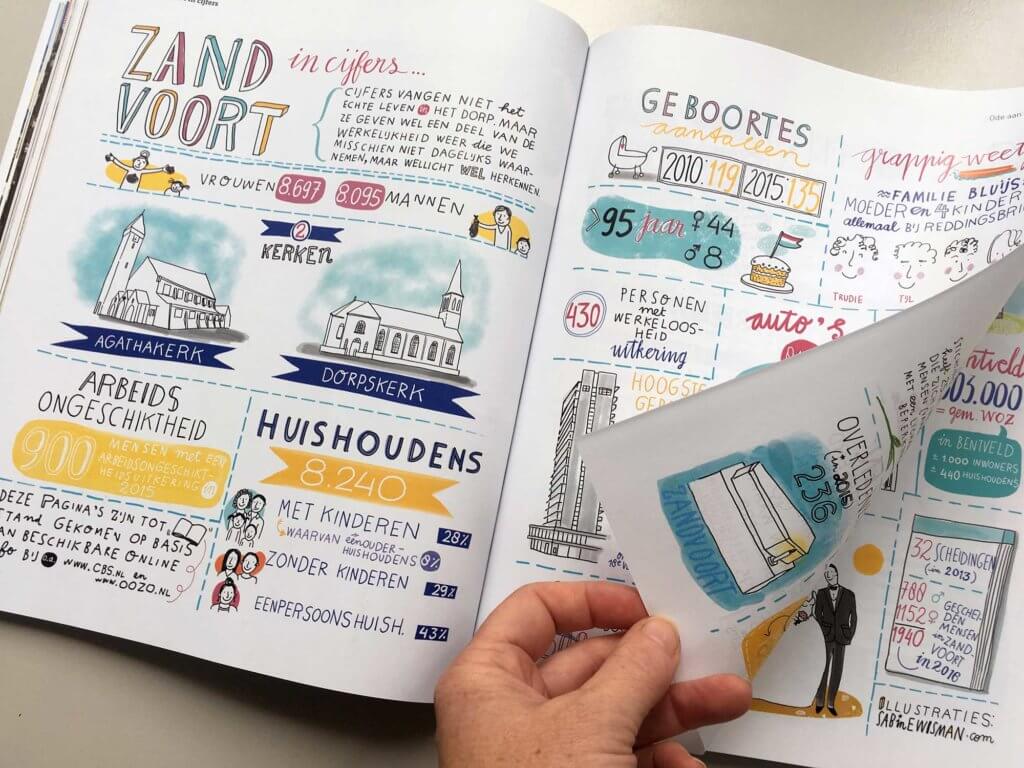 in cijfers
ZAND
VOORT
in cijfers...
CIJFERS VANGEN NIET het
ECHTE LEVEN in HET DORP, MAAR
ZE GEVEN WEL EEN DEEL VAN DE
WERKELIJKHEID WEER die WE
MISSCHIEN NIET DAGELIJKS WAAR-
NEMEN, MAAR WELLICHT WEL HERKENNEN.
VROUWEN 8.697 8.095 MANNEN
2
KERKEN
AGATHAKERK
DORPSKERK
ARBEIDS
ONGESCHIKTHEID
900
MENSEN met EEN
ARBEIDSONGESCHIKT-
HEIDSUITKERING in
2015
DEZE PAGINA'S ZIJN TOT
STAND GEKOMEN OP BASIS
VAN BESCHIKBARE ONLINE
BIJ o.a. WWW.CBS.NL en
WWW.OOZO.NL
HUISHOUDENS
8.240
MET KINDEREN 28%
WAARVAN éénOUDER-
HUISHOUDENS 8%
ZONDER KINDEREN 29%
EENPERSOONSHUISH. 43%
Ode aan
GEBOORTES
aantallen
2010: 119 2015: 135
>95 jaar ♀ 44
♂ 8
grappig weet
≈ FAMILIE BLUIJS
MOEDER en 4 KINDER
allemaal BIJ REDDINGSBRI
TRUDIE TIJL
430
PERSONEN
met
WERKELOOS-
HEID
uitkering
auto's
HOOGSTE
GEB
OVERLEDE
(in 2015)
236
ZANDVOORT
ntveld
03.000
= gem. WOZ
in BENTVELD
± 1.000 INWONERS
± 440 HUISHOUDENS
32 SCHEIDINGEN
(in 2013)
788 ♂
1152 ♀
1940
GESCHEI-
DEN
MENSEN
in ZAND
VOORT
in 2016
ILLUSTRATIES:
SABINEWISMAN.com